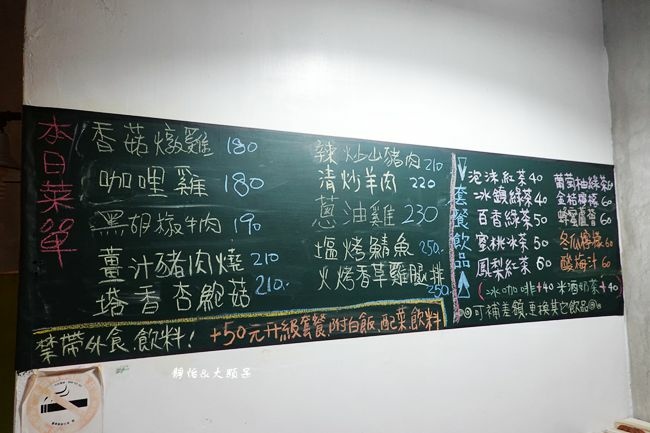 本日菜單
香菇燉雞 180
咖哩雞 180
黑胡椒牛肉 190
薑汁豬肉燒 210
塔香杏鮑菇 210.
辣炒山豬肉 210
清炒羊肉 220
蔥油雞 230
塩烤鯖魚 250.
火烤香草雞腿排 250
套餐飲品
泡沫紅茶 40
冰鎮綠茶 40
百香綠茶 50
蜜桃冰茶 50
鳳梨紅茶 60
葡萄柚綠茶 60
金桔檸檬 60
蜂蜜蘆薈 60
冬瓜檸檬 60
酸梅汁 60
(冰咖啡+40 米酒奶茶+40)
◎可補差額,更換其它飲品◎
禁帶外食、飲料!
+50元升級套餐,附白飯、配菜、飲料
靜怡&大顆呆